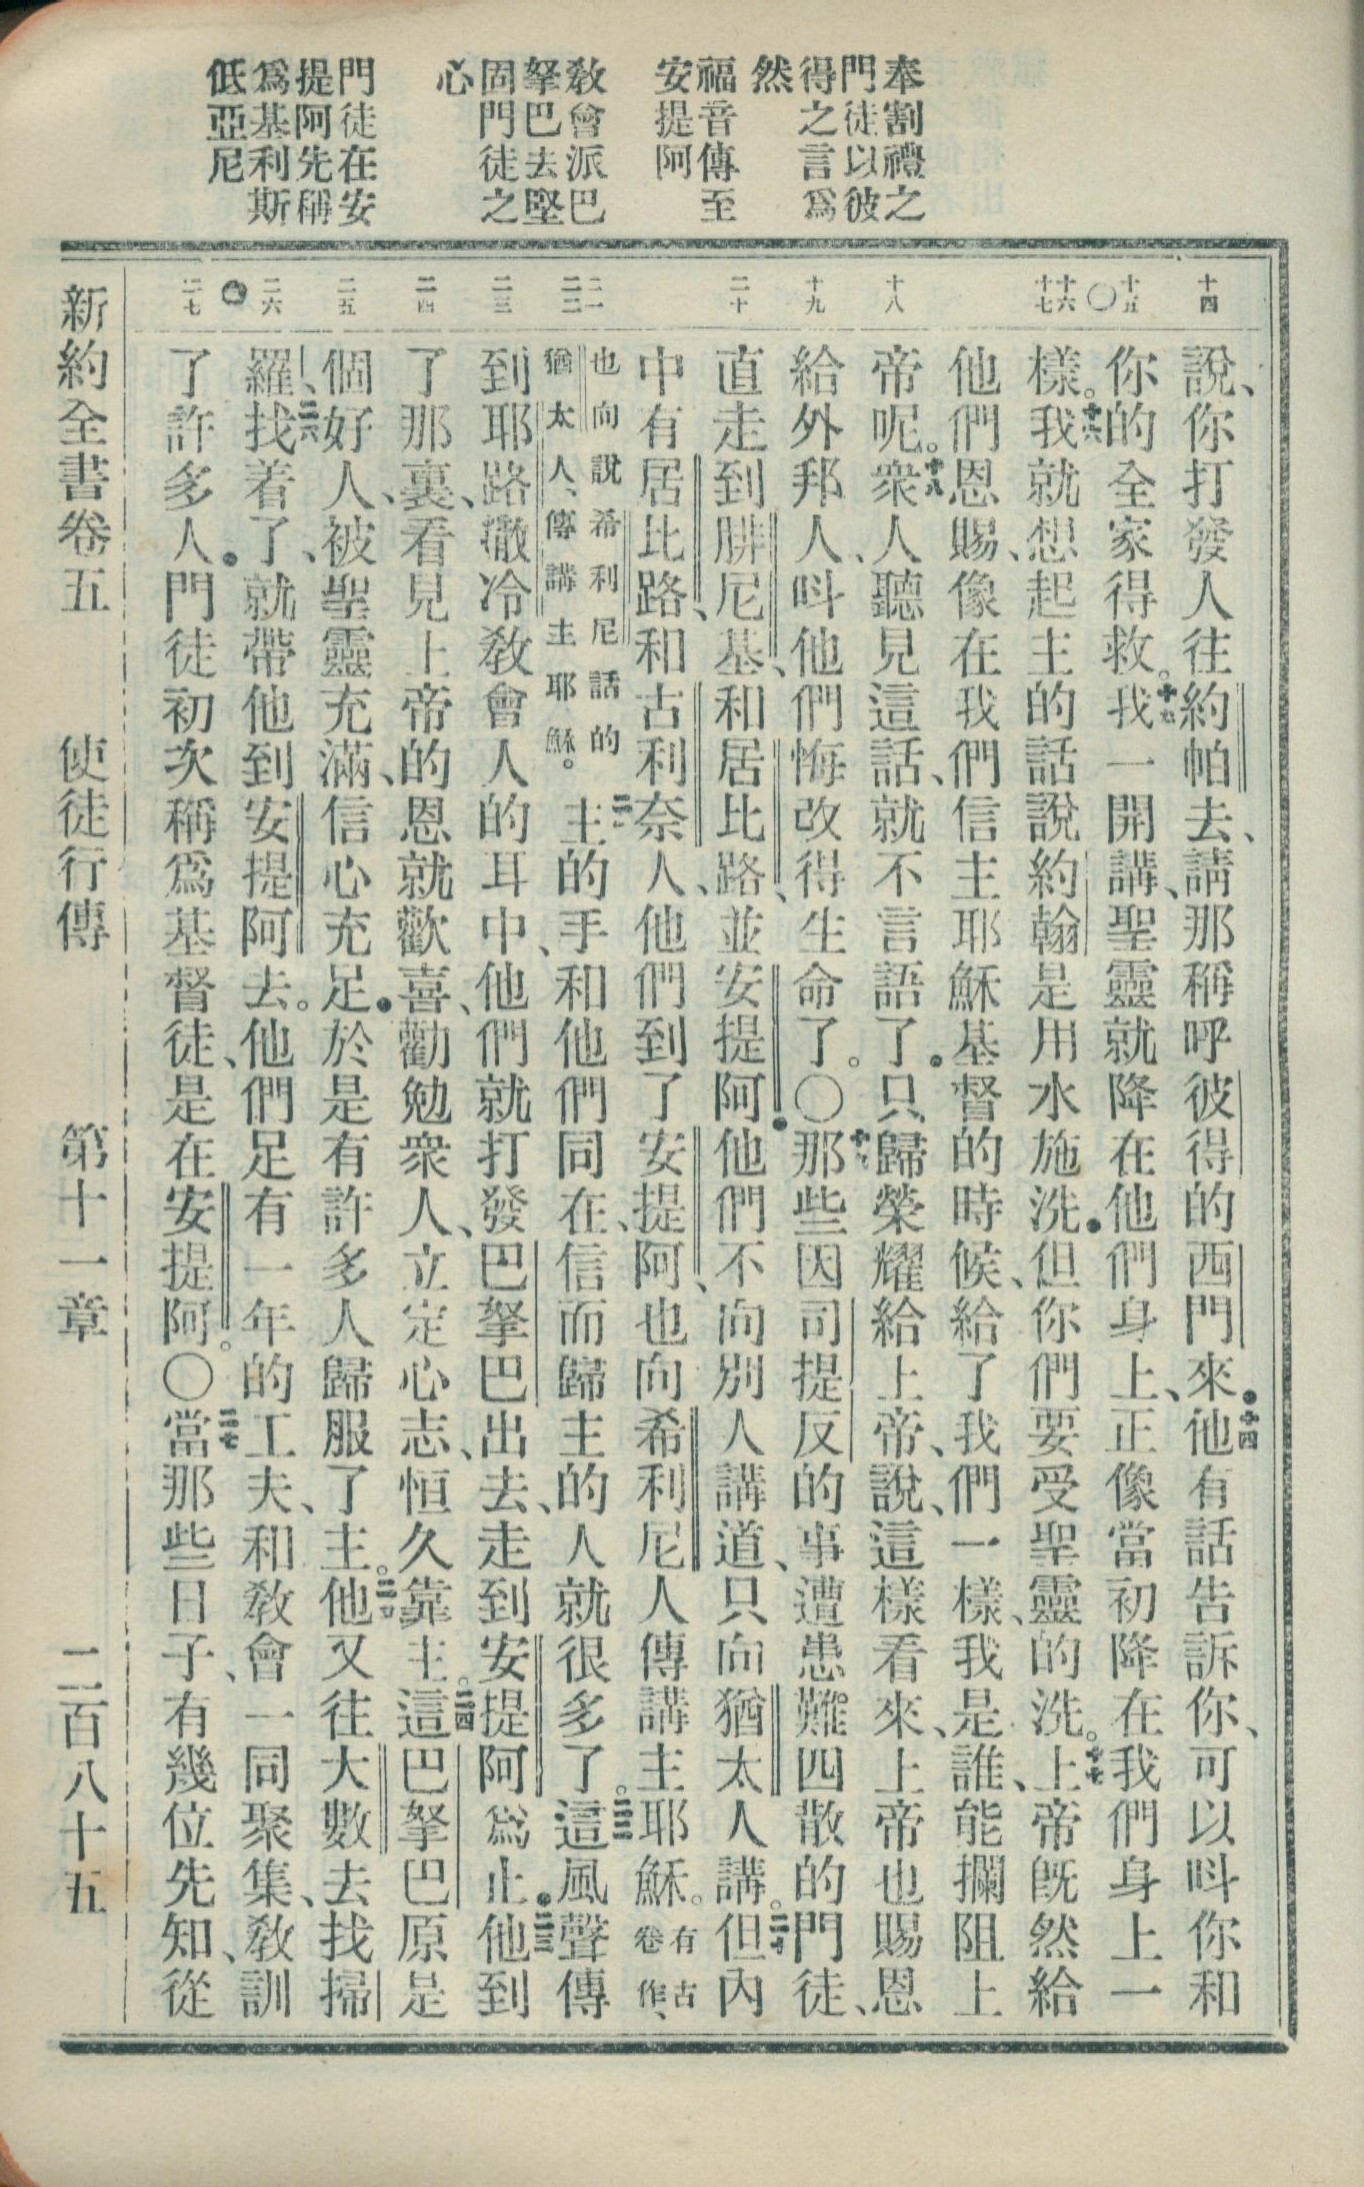 奉割禮之
門徒以彼
得之言爲
然
福音傳至
安提阿
教會派巴
拏巴去堅
固門徒之
心
門徒在安
提阿先稱
爲基利斯
低亞尼
十四
十五
〇
十六
十七
十八
十九
二十
二一
二二
二三
二四
二五
二六
二七
說、你打發人往約帕去、請那稱呼彼得的西門來．十四他有話告訴你、可以呌你和
你的全家得救。十五我一開講、聖靈就降在他們身上、正像當初降在我們身上一
樣。十六我就想起主的話說約翰是用水施洗．但你們要受聖靈的洗。十七上帝旣然給
他們恩賜、像在我們信主耶穌基督的時候、給了我們一樣、我是誰、能攔阻上
帝呢。十八衆人聽見這話、就不言語了．只歸榮耀給上帝、說、這樣看來、上帝也賜恩
給外邦人、呌他們悔改得生命了。〇十九那些因司提反的事遭患難四散的門徒、
直走到腓尼基、和居比路、並安提阿．他們不向別人講道、只向猶太人講。二十但內
中有居比路、和古利奈人、他們到了安提阿、也向希利尼人傳講主耶穌。有古卷作、
也向說希利尼話的
猶太人、傳講主耶穌。二一主的手和他們同在、信而歸主的人就很多了。二二這風聲傳
到耶路撒冷教會人的耳中、他們就打發巴拏巴出去、走到安提阿爲止．二三他到
了那裏、看見上帝的恩就歡喜、勸勉衆人、立定心志、恒久靠主。二四這巴拏巴原是
個好人、被聖靈充滿、信心充足．於是有許多人歸服了主。二五他又往大數去找掃
羅、二六找着了、就帶他到安提阿去。他們足有一年的工夫、和教會一同聚集、教訓
了許多人．門徒初次稱爲基督徒、是在安提阿。〇二七當那些日子、有幾位先知、從
新約全書卷五　使徒行傳　第十一章　二百八十五